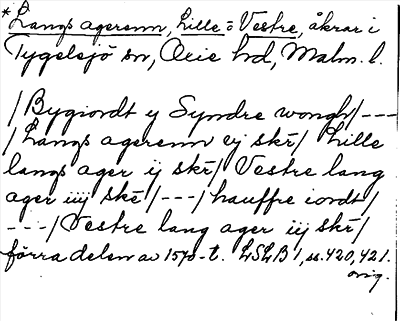 *Langs agerenn, Lille = Vestre, åkrar i
Tygelsjö sn, Oxie hd, Malm. l.
/Bygiordt y Syndre wongh/---
/Langs agerenn ej skr/ Lille
langs ager ij skr/ Vestre lang
ager iiij ske/---/hauffre iordt/
---/Vestre lang ager iij skr/
förra delen av 1570-t. LSLB 1, ss. 420, 421.
orig.